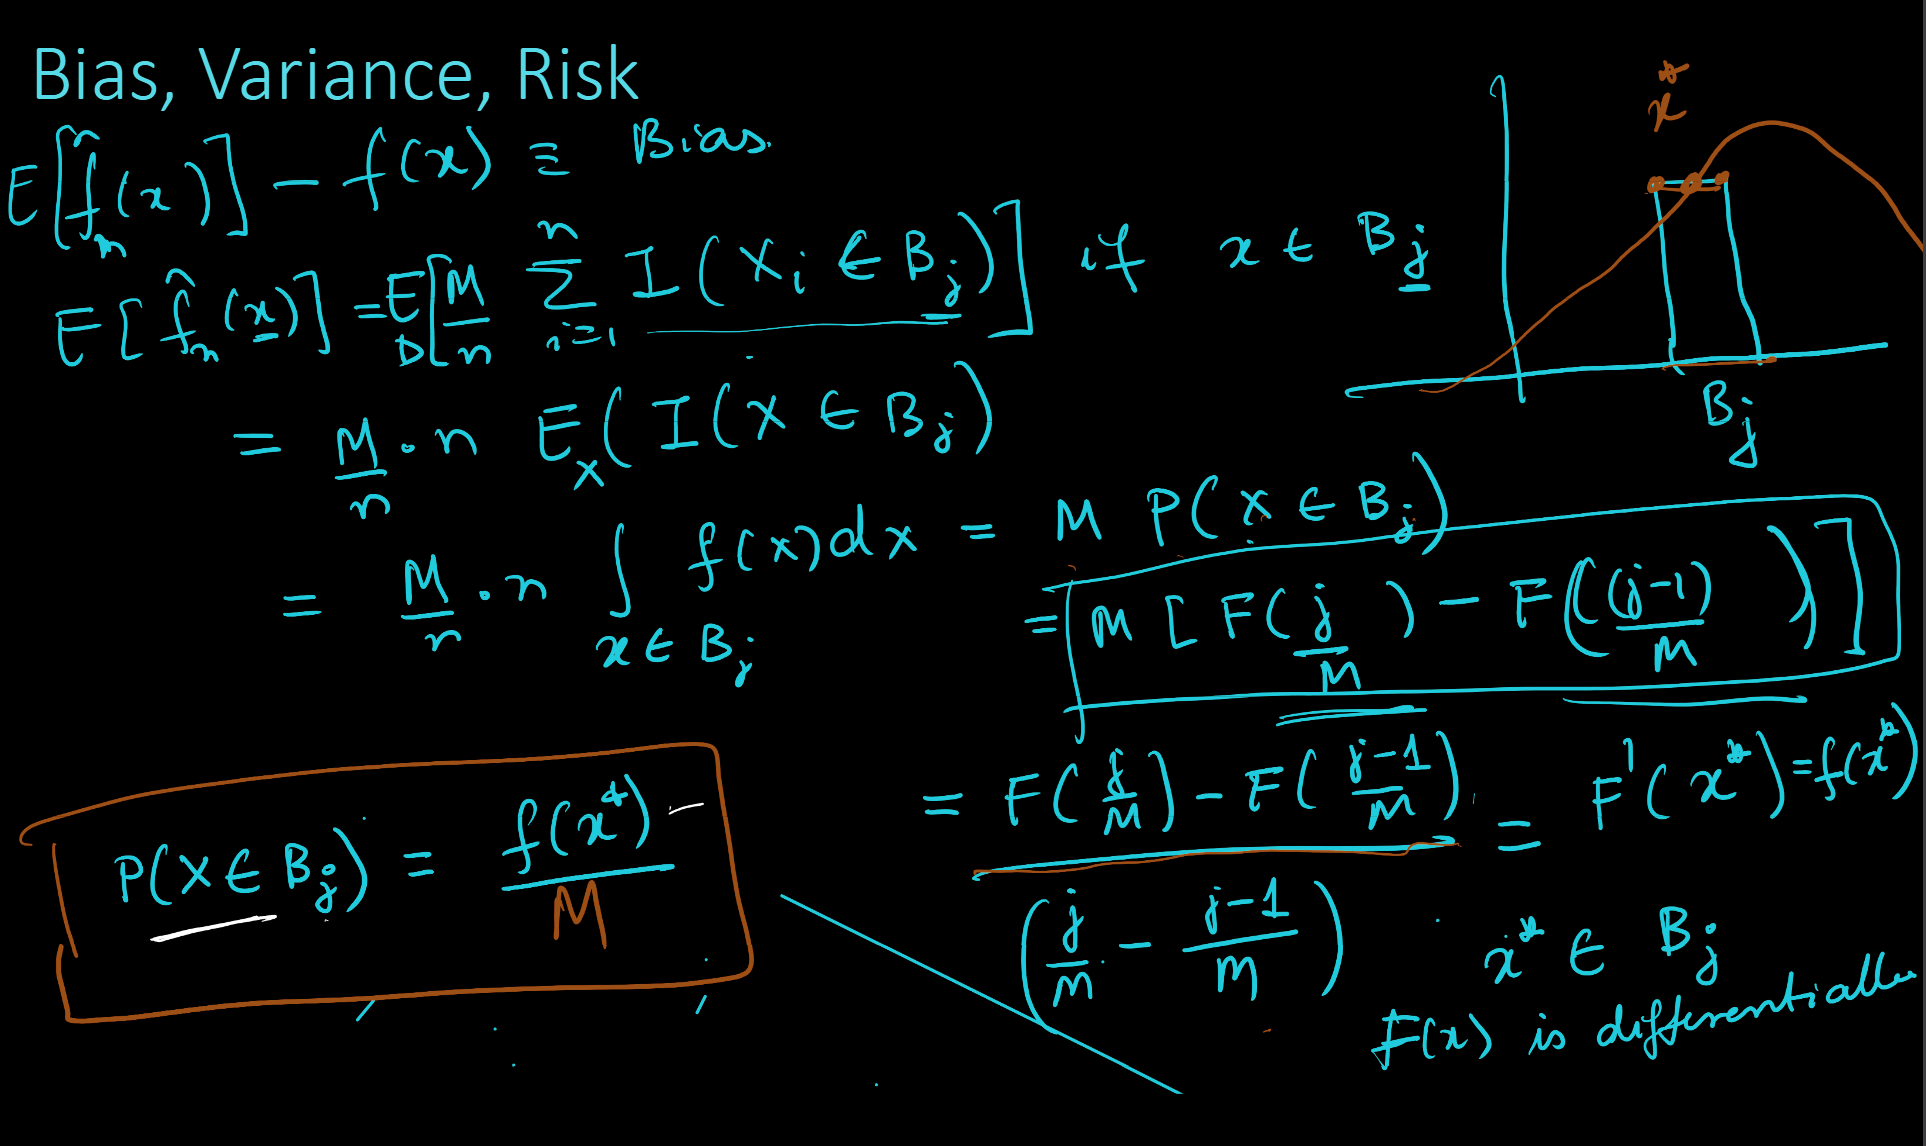 Bias, Variance, Risk
E[f̂_n(x)] - f(x) ≡ Bias.
E[f̂_n(x)] = E_D[M/n ∑_{i=1}^{n} I(X_i ∈ B_j)] if x ∈ B_j
= M/n · n E_X(I(X ∈ B_j)
= M/n · n ∫_{x ∈ B_j} f(x)dx = M P(X ∈ B_j)
= M [F(j/M) - F((j-1)/M)]
= F(j/M) - F(j-1/M) / (j/M - j-1/M) = F'(x*) = f(x*)
x* ∈ B_j
F(x) is differentiable
P(X ∈ B_j) = f(x*)/M
x*
B_j